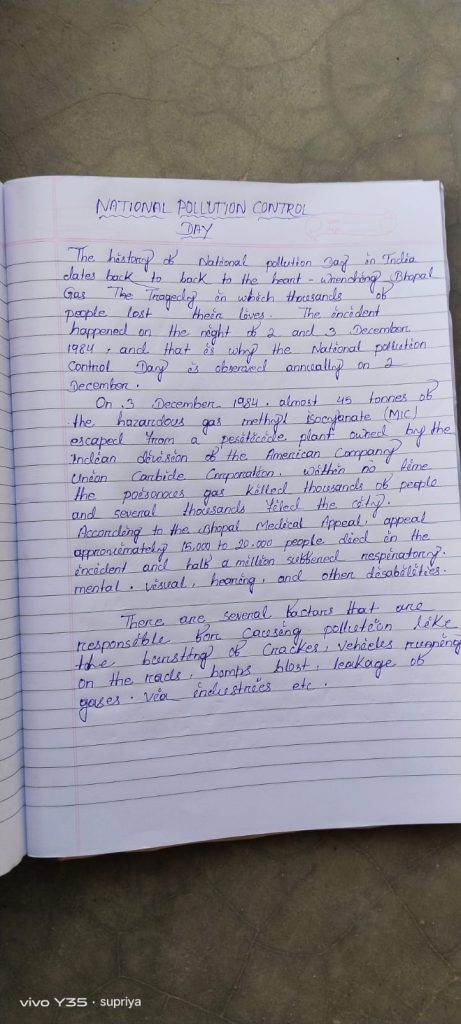 NATIONAL POLLUTION CONTROL
DAY
The history of National pollution Day in India
dates back to back to the heart - wrenching Bhopal
Gas The Tragedy in which thousands of
people lost their lives. The incident
happened on the night of 2 and 3 December
1984, and that is why the National pollution
Control Day is observed annually on 2
December.
On 3 December 1984. almost 45 tonnes of
the hazardous gas methyl isocyanate (MIC)
escaped from a pesticide plant owned by the
Indian division of the American Company
Union Carbide Corporation. within no time
the poisonous gas killed thousands of people
and several thousands filed the city.
According to the Bhopal Medical Appeal, appeal
approximately 15,000 to 20.000 people died in the
incident and half a million suffered respiratory.
mental. visual, hearing, and other disabilities.
There are several factors that are
responsible for causing pollution like
the bursting of crackes, vehicles running
on the roads, bombs blost, leakage of
gases. via industries etc.
vivo Y35 · supriya